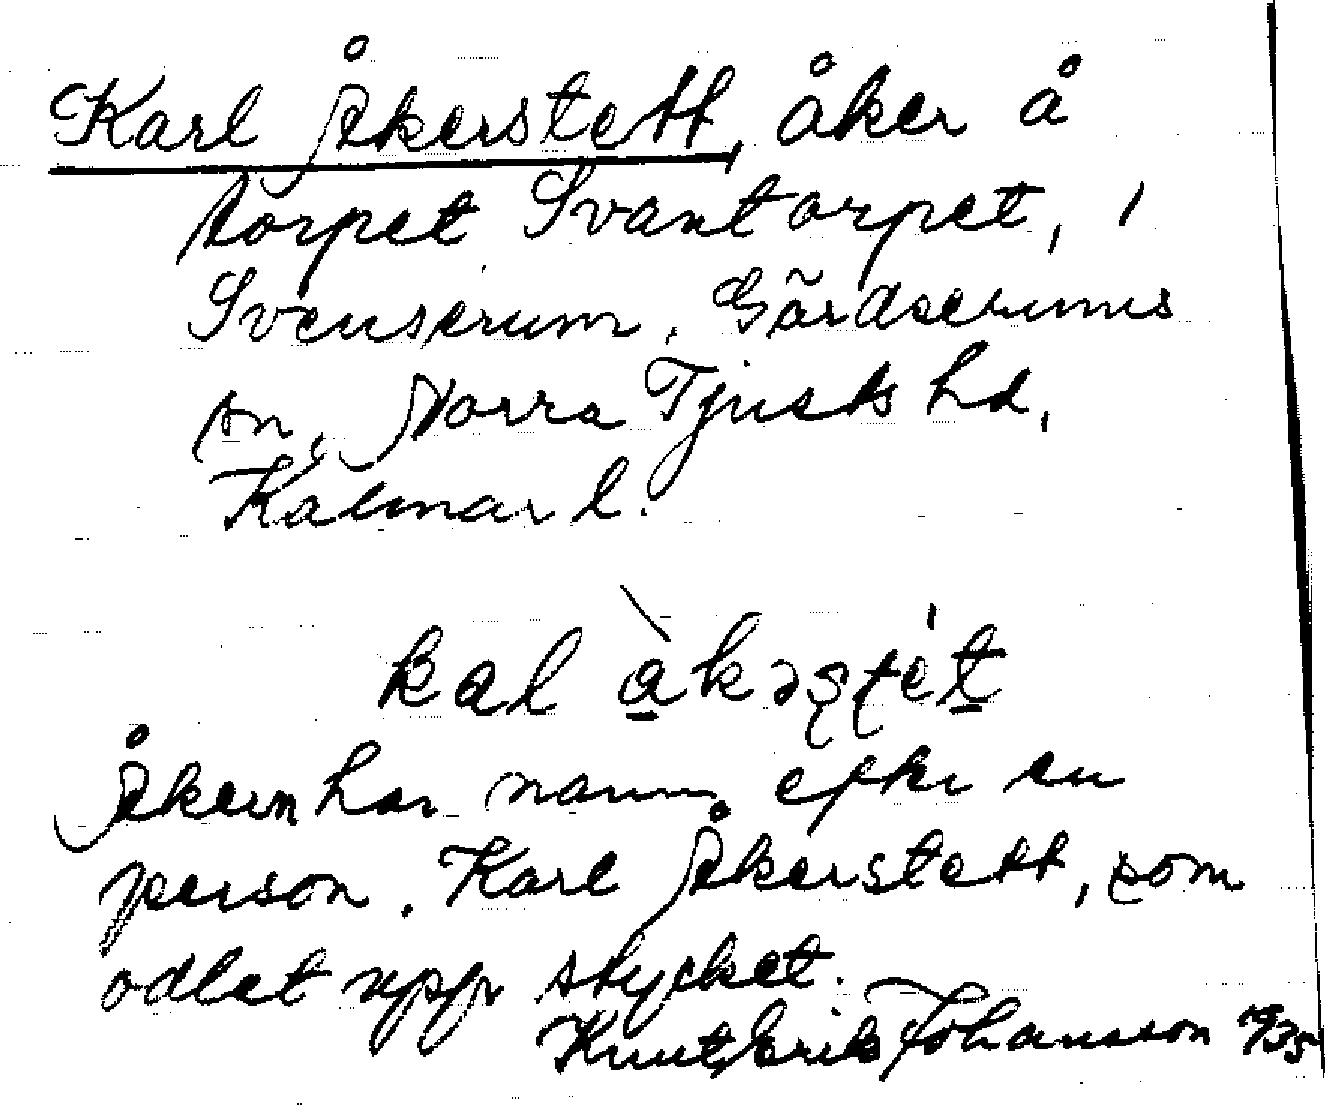 Karl Åkerstett, åker å
torpet Svantorpet, i
Svenserum. Gärdserums
sn, Norra Tjusts hd,
Kalmar l.
kal àkəʂʈét
Åkern har namn efter en
person, Karl Åkerstett, som
odlat upp stycket.
Knut Erik Johansson 1935